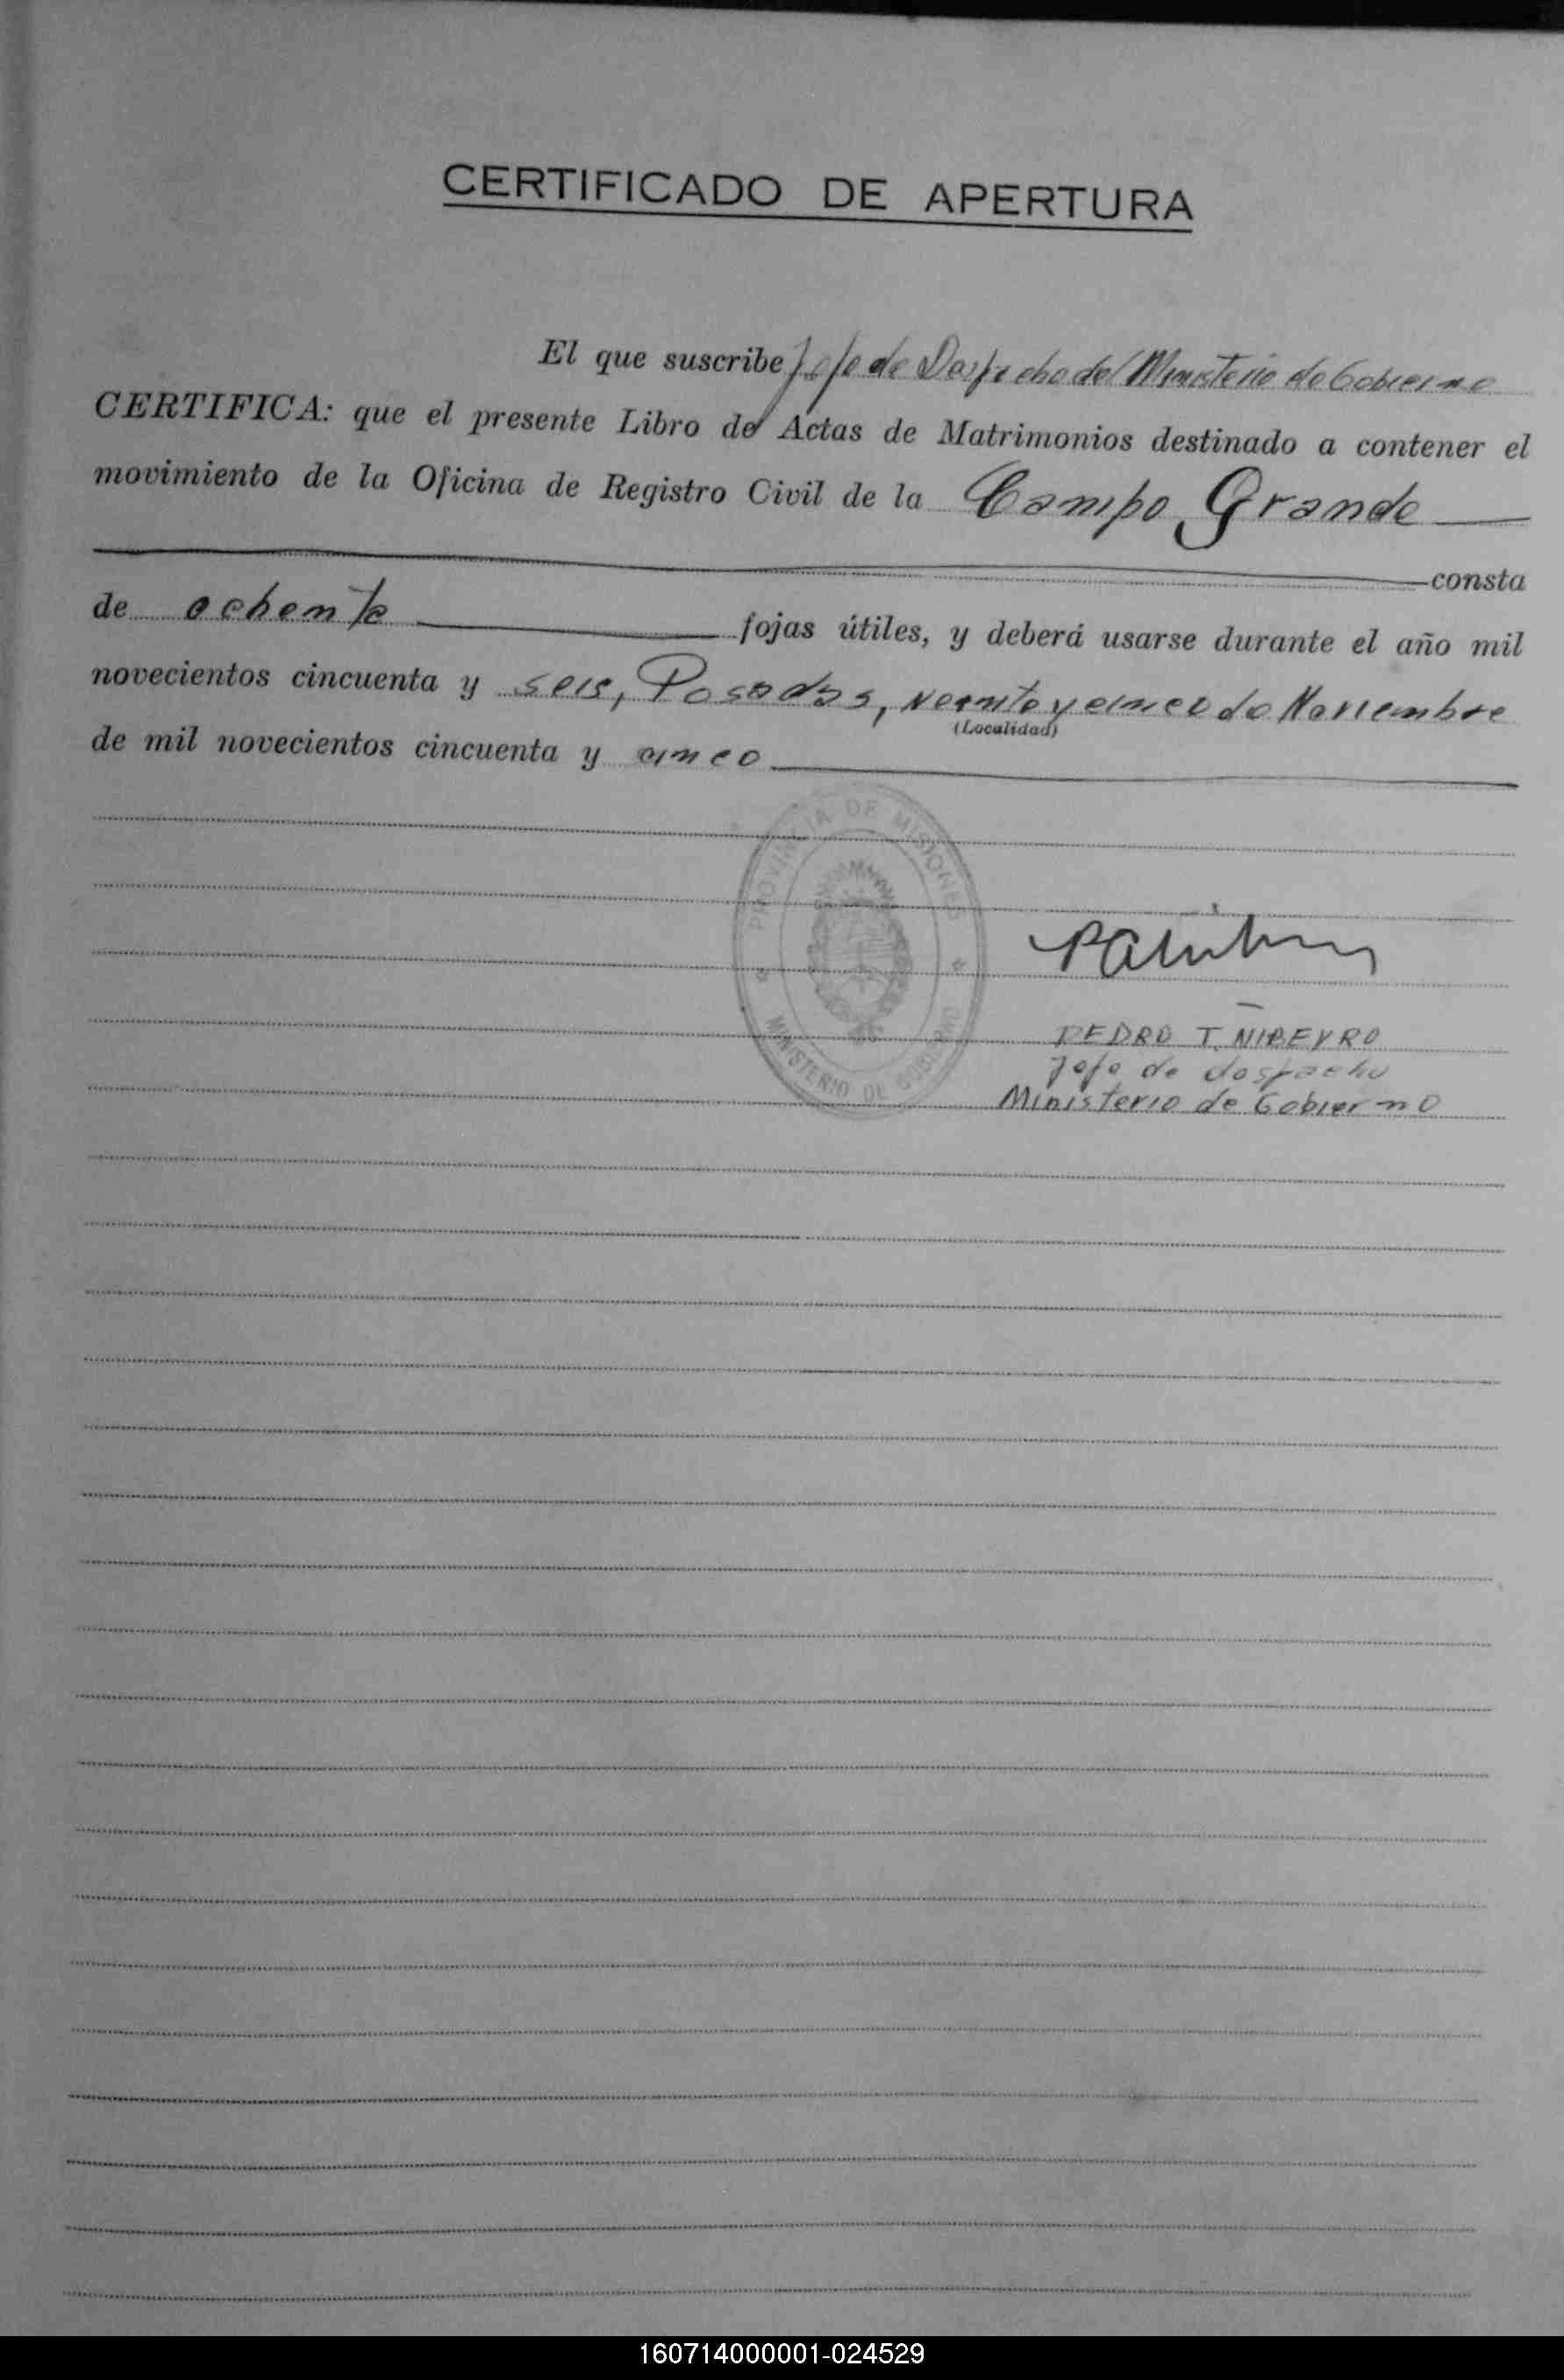 CERTIFICADO DE APERTURA
El que suscribe Jefe de Despacho del Ministerio de Gobierno
CERTIFICA: que el presente Libro de Actas de Matrimonios destinado a contener el
movimiento de la Oficina de Registro Civil de la Campo Grande
consta
de ochenta fojas útiles, y deberá usarse durante el año mil
novecientos cincuenta y seis, Posadas, veinte y cinco de Noviembre
(Localidad)
de mil novecientos cincuenta y cinco
PROVINCIA DE MISIONES
MINISTERIO DE GOBIERNO
PEDRO T. NIBEYRO
Jefe de despacho
Ministerio de Gobierno
160714000001-024529